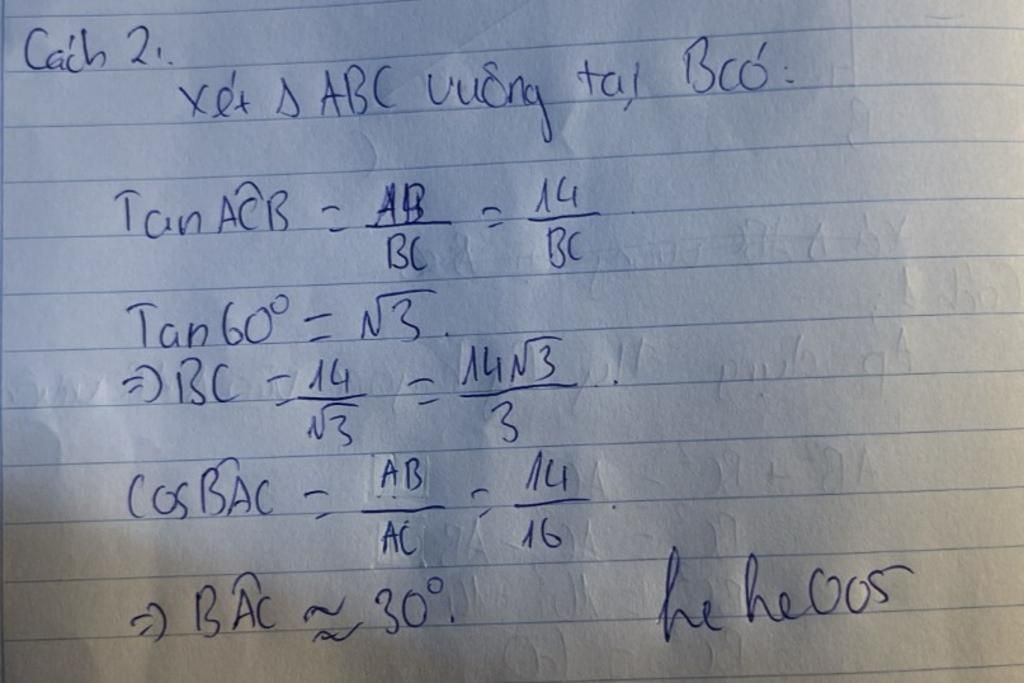 Cách 2:
Xét Δ ABC vuông tại B có:
Tan ACB = AB/BC = 14/BC
Tan 60° = √3.
⇒ BC = 14/√3 = 14√3/3.
Cos BAC = AB/AC = 14/16.
⇒ BAC ≈ 30°.
hehe005